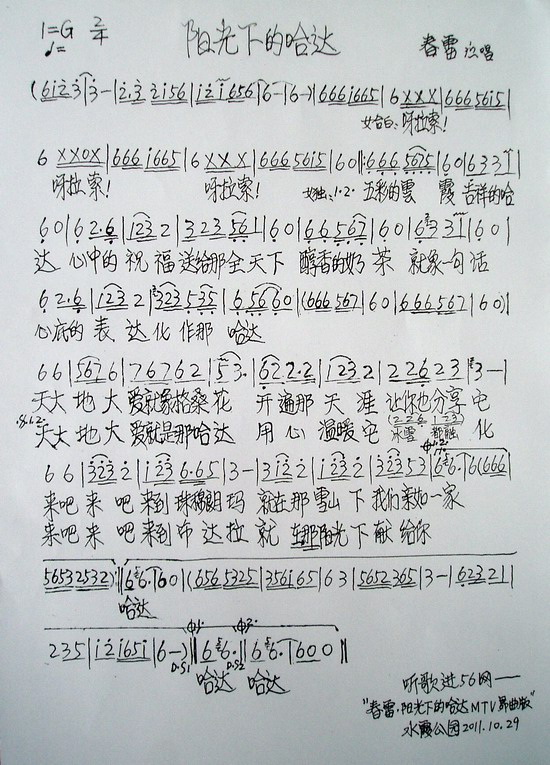 1=G 2/4 阳光下的哈达 春雷 演唱
♩=
(6i23|3-|2.3 2156|i2i656|6-|6-)|666i665|6 XXX|6665615|
女合白:呀拉索!
6 XX0X|666i665|6 XXX|6665615|60||:6665675|60|6331|
呀拉索! 呀拉索! 女独:1·2· 五彩的雲 霞 吉祥的哈
60|62·6|1232|323561|60|66567|60|6331|60|
达 心中的祝福送给那全天下 醇香的奶茶 就象一句话
62·6|1232|323535|65660|(666567|60|666567|60)|
心底的表达化作那 哈达
66|5676|76762|53·|622·2|1232|22623|3-|
天大地大爱就象格桑花 开遍那天涯 让你也分享它
天大地大爱就是那哈达 用心温暖它 冰雪都融化
66|3232|1236·65|3-|3122|1232|32353|66·|6(666|
来吧来吧来到珠穆朗玛 就在那雪山下我们亲如一家
来吧来吧来到布达拉就 在那阳光下献给你
56532532):||66·|60|(6565325|356165|63|5652365|3-|62321|
哈达
235|i2i65i|6-)||66·||66·|600||
D.S1 D.S2
哈达 哈达
听歌进56网——
"春雷·阳光下的哈达MTV 昂曲版"
水霞公园2011.10.29